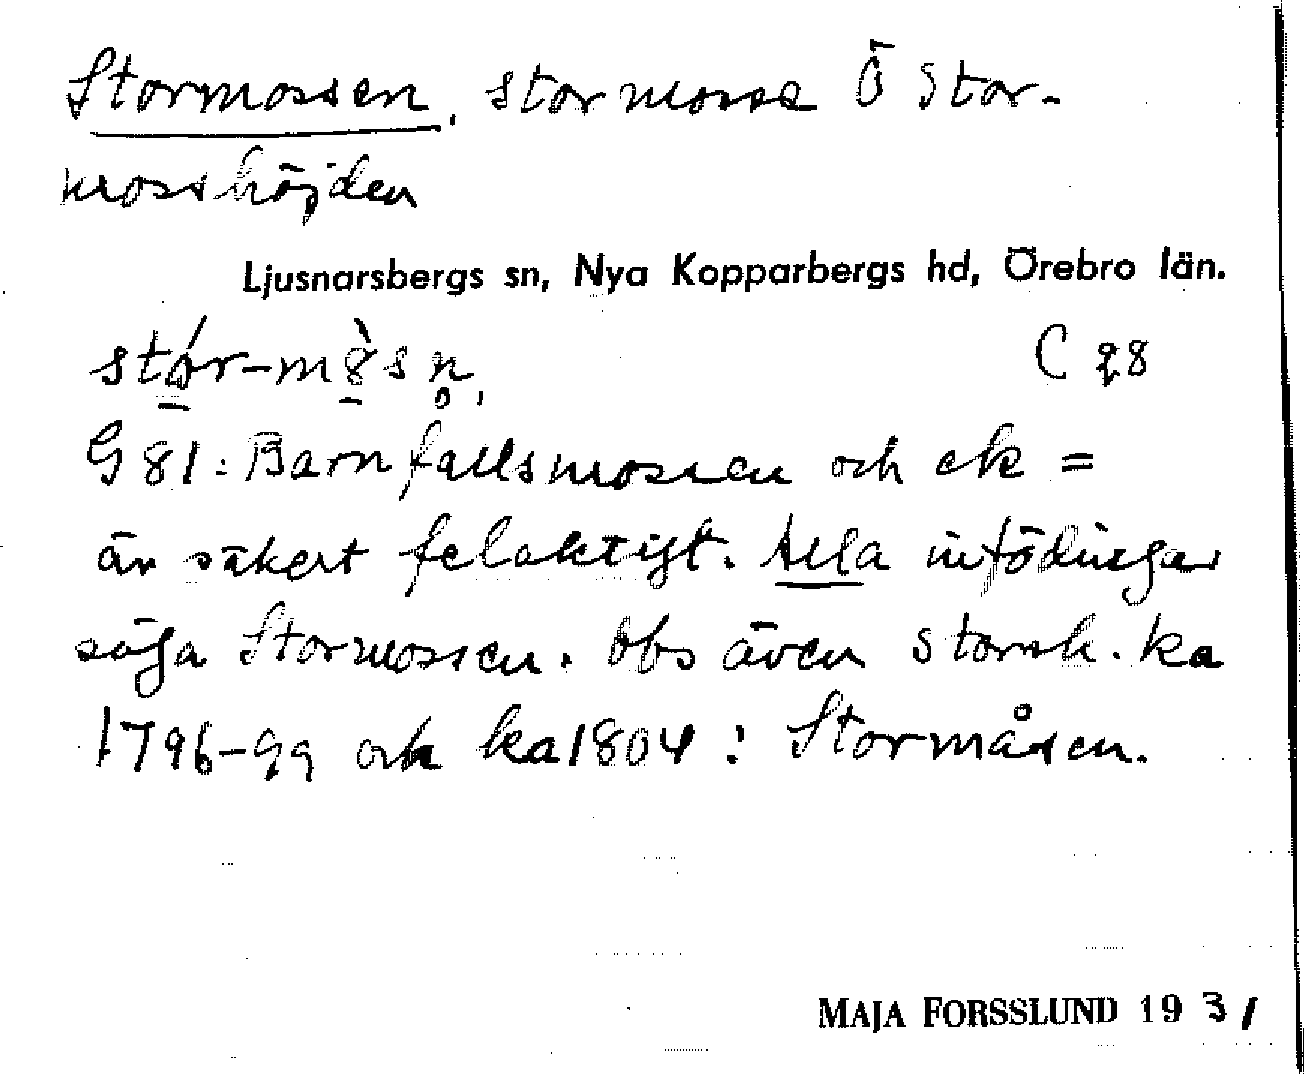 Stormossen, stor mosse Ö Stor-
mosshöjden
Ljusnarsbergs sn, Nya Kopparbergs hd, Örebro län.
stór-mòsn. C 28
G 81: Barnfallsmossen och ek =
är säkert felaktigt. Alla infödingar
säga Stormossen. Obs även storsk. ka
1796-99 och ka 1804: Stormåsen.
MAJA FORSSLUND 1931